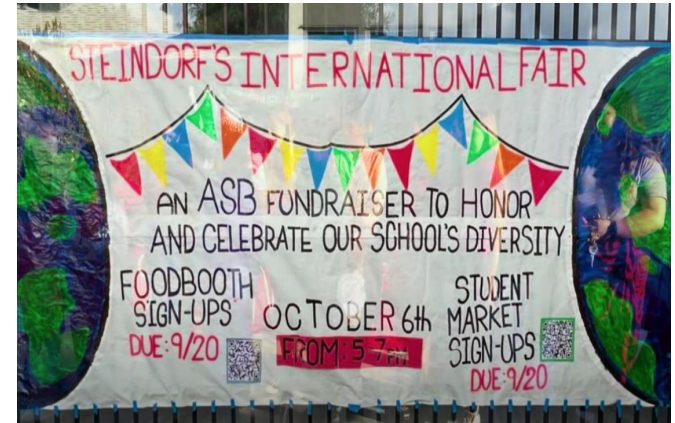 STEINDORF'S INTERNATIONAL FAIR
AN ASB FUNDRAISER TO HONOR
AND CELEBRATE OUR SCHOOL'S DIVERSITY
FOODBOOTH
SIGN-UPS
DUE: 9/20
OCTOBER 6th
FROM: 5-7PM
STUDENT
MARKET
SIGN-UPS
DUE: 9/20